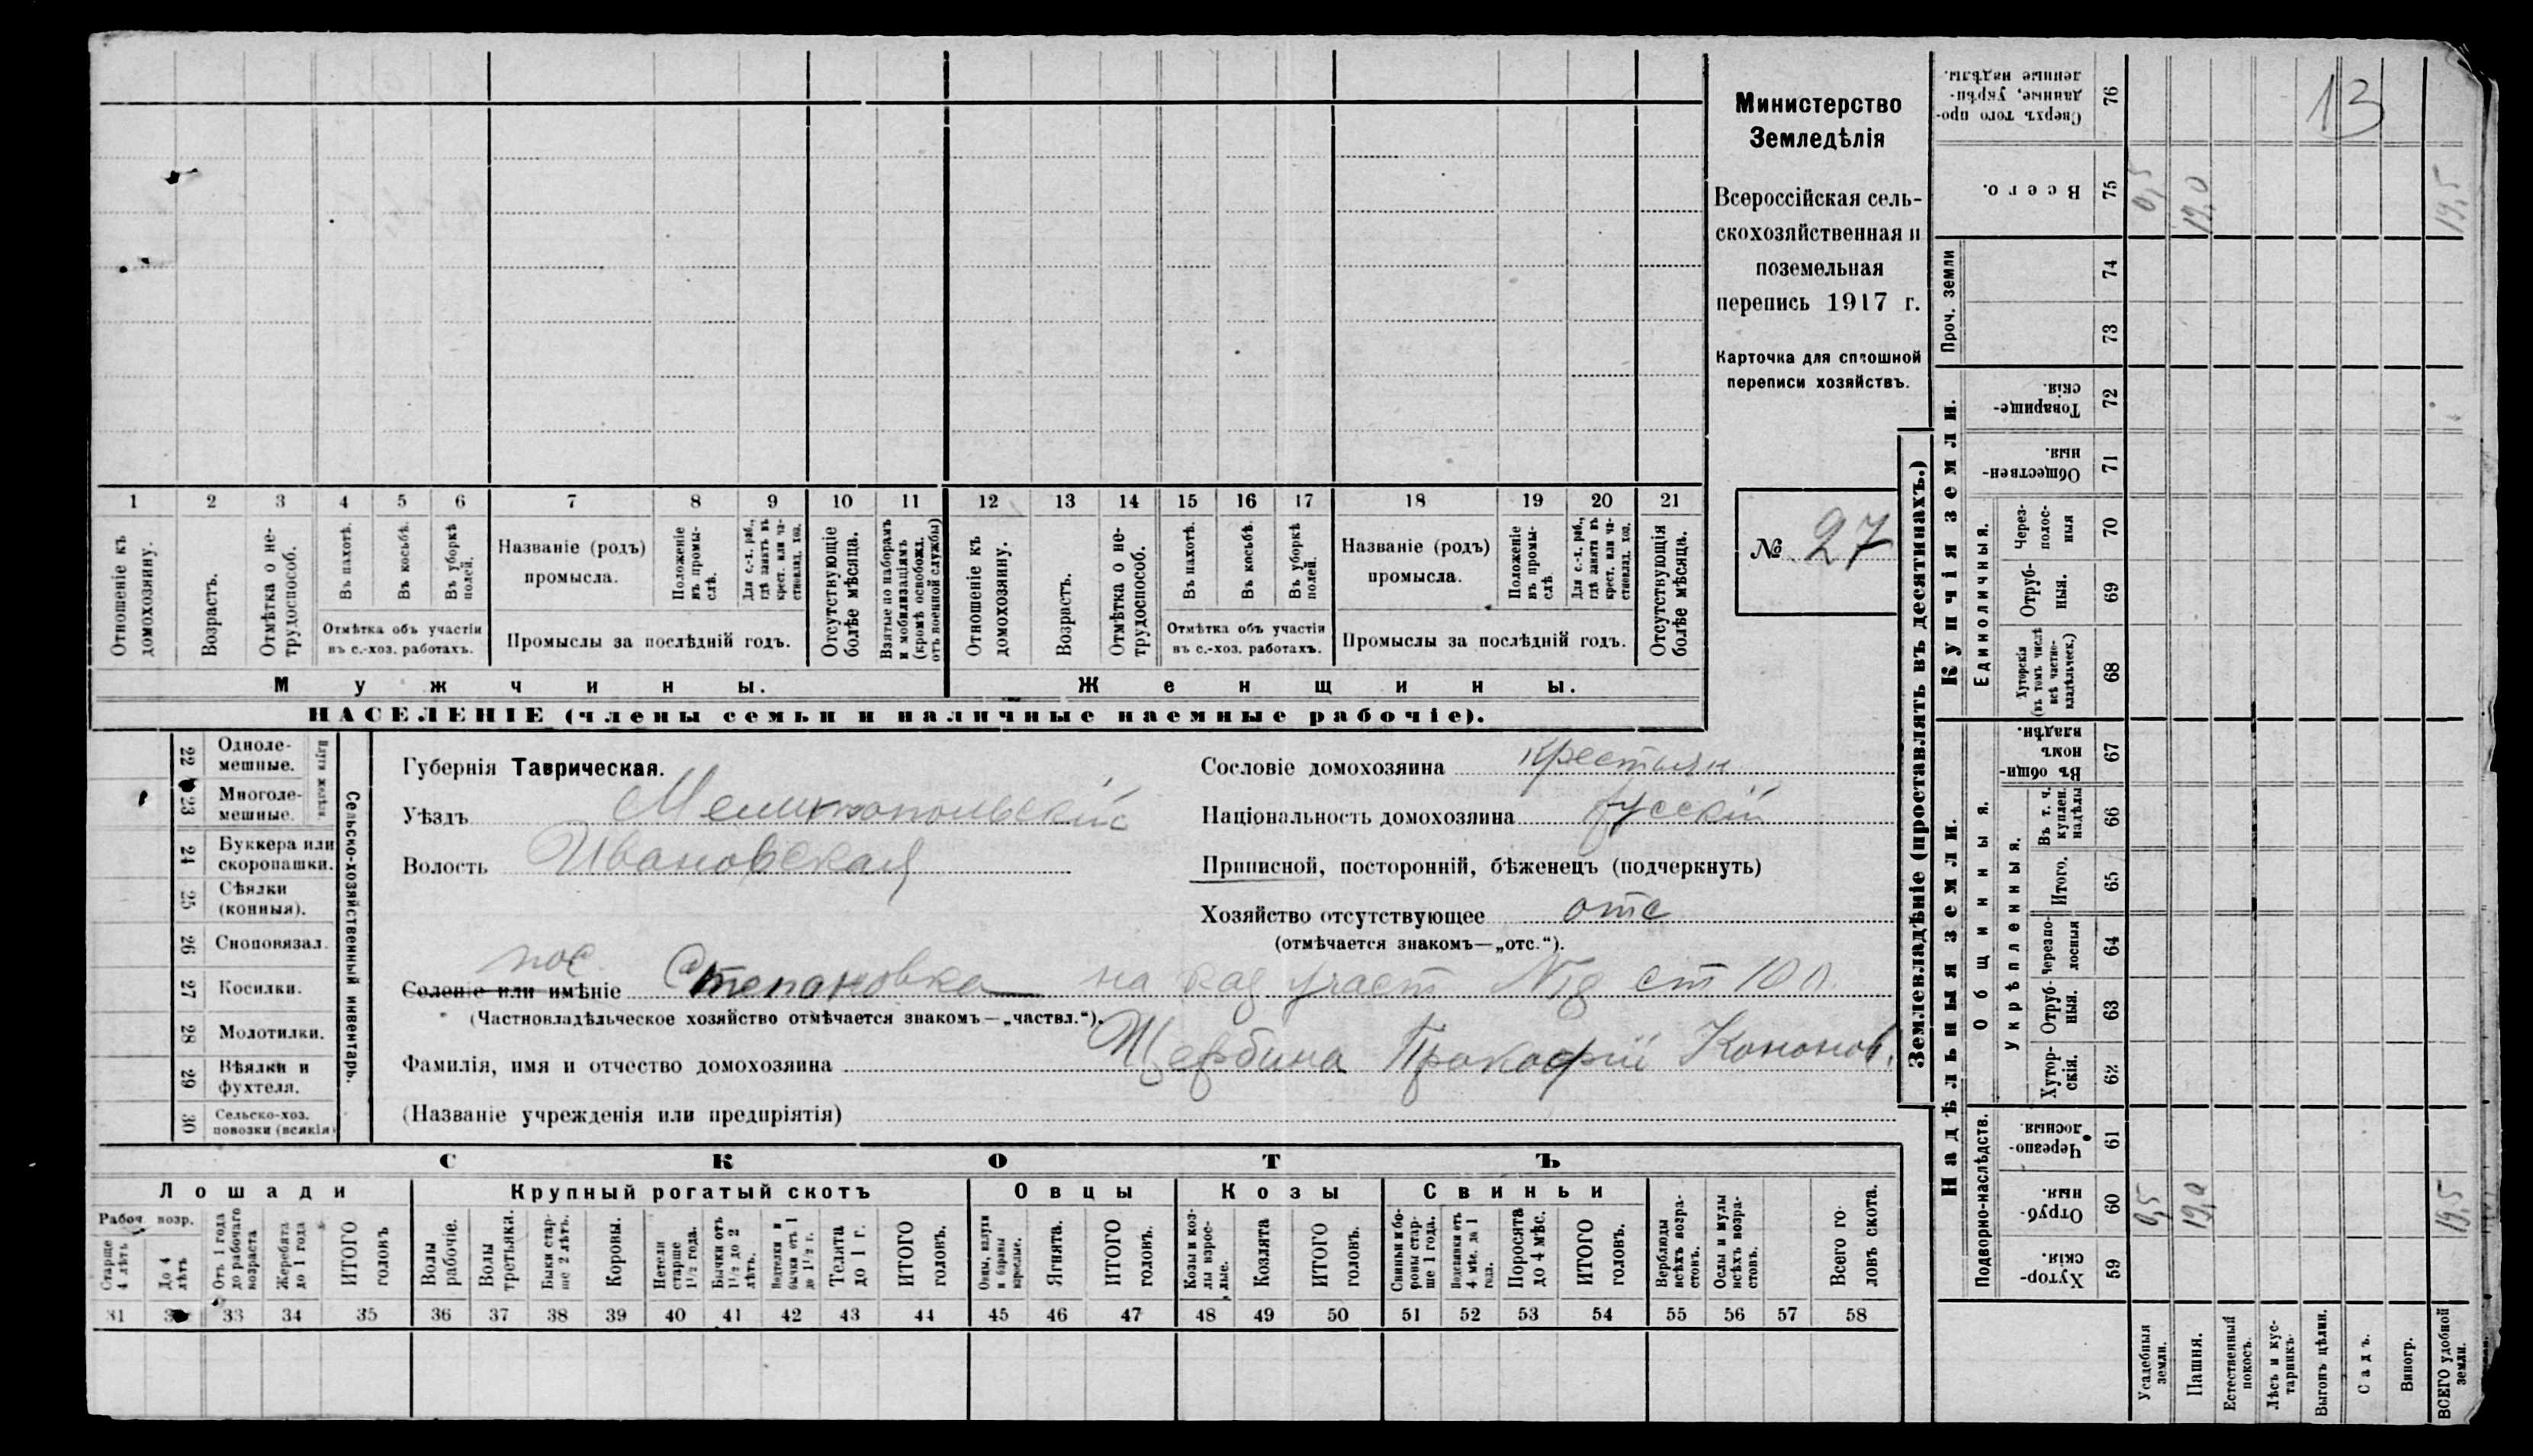 Министерство
Земледѣлія
Всероссійская сель-
скохозяйственная и
поземельная
перепись 1917 г.
Карточка для сплошной
переписи хозяйствъ.
№ 27
1 2 3 4 5 6 7 8 9 10 11 12 13 14 15 16 17 18 19 20 21
Отношеніе къ домохозяину.
Возрастъ.
Отмѣтка о не-трудоспособ.
Въ пахотѣ.
Въ косьбѣ.
Въ уборкѣ полей.
Отмѣтка объ участіи
въ с.-хоз. работахъ.
Названіе (родъ)
промысла.
Положеніе въ промы-слѣ.
Для с.-х. раб., гдѣ занятъ въ крест. или ча-стновлад. хоз.
Промыслы за послѣдній годъ.
Отсутствующіе болѣе мѣсяца.
Взятые по наборамъ и мобилизаціямъ (кромѣ освобожд. отъ военной службы)
Отношеніе къ домохозяину.
Возрастъ.
Отмѣтка о не-трудоспособ.
Въ пахотѣ.
Въ косьбѣ.
Въ уборкѣ полей.
Отмѣтка объ участіи
въ с.-хоз. работахъ.
Названіе (родъ)
промысла.
Положеніе въ промы-слѣ.
Для с.-х. раб., гдѣ занята въ крест. или ча-стновлад. хоз.
Промыслы за послѣдній годъ.
Отсутствующія болѣе мѣсяца.
Мужчины.
Женщины.
НАСЕЛЕНІЕ (члены семьи и наличные наемные рабочіе).
Сельско-хозяйственный инвентарь.
22 Одноле-мешные.
23 Многоле-мешные.
24 Буккера или скоропашки.
25 Сѣялки (конныя).
26 Сноповязал.
27 Косилки.
28 Молотилки.
29 Вѣялки и фухтеля.
30 Сельско-хоз. повозки (всякія)
Губернія Таврическая.
Уѣздъ Мелитопольскій
Волость Ивановская
Сословіе домохозяина крестьян
Національность домохозяина русскій
Приписной, посторонній, бѣженецъ (подчеркнуть)
Хозяйство отсутствующее отс
(отмѣчается знакомъ—„отс.“).
пос.
Селеніе или имѣніе Степановка на участ ст
(Частновладѣльческое хозяйство отмѣчается знакомъ—„частвл.“).
Фамилія, имя и отчество домохозяина Щербина Прокофій Кононов.
(Названіе учрежденія или предпріятія)
СКОТЪ
Лошади
Крупный рогатый скотъ
Овцы
Козы
Свиньи
Рабоч. возр.
Старше 4 лѣтъ
До 4 лѣтъ
Отъ 1 года до рабочаго возраста
Жеребята до 1 года
ИТОГО головъ
Волы рабочіе.
Волы третьяки.
Быки стар-ше 2 лѣтъ.
Коровы.
Нетели старше 1½ года.
Бычки отъ 1½ до 2 лѣтъ.
бычки отъ 1 до 1½ г.
Телята до 1 г.
ИТОГО головъ.
Овцы, валухи и бараны взрослые.
Ягнята.
ИТОГО головъ.
Козы и коз-лы взрос-лые.
Козлята
ИТОГО головъ.
Свиньи и бо-ровы стар-ше 1 года.
Подсвинки отъ 4 мѣс. до 1 года.
Поросята до 4 мѣс.
ИТОГО головъ.
Верблюды всѣхъ возра-стовъ.
Ослы и мулы всѣхъ возра-стовъ.
Всего го-ловъ скота.
31 33 34 35 36 37 38 39 40 41 42 43 44 45 46 47 48 49 50 51 52 53 54 55 56 57 58
Землевладѣніе (проставлять въ десятинахъ.)
Надѣльныя земли.
Купчія земли.
Проч. земли
Подворно-наслѣдств.
Общинныя.
Укрѣпленныя.
Единоличныя.
Сверхъ того про-данные, укрѣп-ленные надѣлы. 76
Всего. 75
74
73
Товарище-скія. 72
Обществен-ныя. 71
Через-полос-ныя 70
Отруб-ныя. 69
Хуторскія (въ томъ числѣ всѣ частно-владѣльческ.) 68
Въ общин-номъ владѣн. 67
Въ т. ч. куплен. надѣлы 66
Итого. 65
Черезпо-лосныя 64
Отруб-ныя. 63
Хутор-скія. 62
Черезпо-лосныя. 61
Отруб-ныя. 60
Хутор-скія. 59
Усадебныя земли.
Пашня.
Естественный покосъ.
Лѣсъ и кус-тарникъ.
Выгонъ цѣлин.
Садъ.
Виногр.
ВСЕГО удобной земли.
13
0,5 19,0 19,5
0,5 19,0 19,5